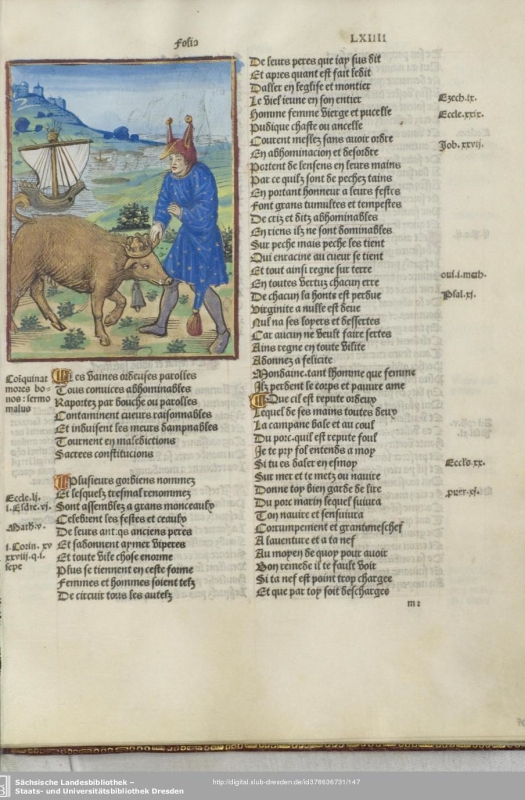 Folio
LXIIII
Coiquinat
mores bo-
nos: sermo
malus
Les vaines ordeuses parolles
Tous conuices abhominables
Raportez par bouche ou parolles
Contaminent cueurs raisonnables
Et induisent les meurs dampnables
Tournent en maledictions
Sacrees constitucions
Eccle.lj.
i.Esdre.vj.
Math.v.
i.Corin.xv
xxviij.q.i.
sepe
Plusieurs gorbiens nommez
Et lesquelz tresmal renommez
Sont assemblez a grans monceaulx
Celebrent les festes et ceaulx
De leurs ant.qs anciens peres
Et sabonnent aymer viperes
Et toute vile chose enorme
Plus se tiennent en ceste forme
Femmes et hommes soient telz
De circuir tous les autelz
De leurs peres que iay sus dit
Et apres quant est fait ledit
Daller en leglise et monstier
Le viel ieune en son entier
Homme femme vierge et pucelle
Pudique chaste ou ancelle
Courent meslez sans auoir ordre
En abhominacion et desordre
Portent de lensens en leurs mains
Par ce quilz sont de pechez tains
En portant honneur a leurs festes
Font grans tumultes et tempestes
De criz et ditz abhominables
En riens ilz ne sont dominables
Sur peche mais peche les tient
Qui enracine au cueur se tient
Et tout ainsi regne sur terre
En toutes vertuz chacun erre
De chacun la honte est perdue
Virginite a nulle est deue
Nul na ses loyers et dessertes
Car aucun ne veult faire sertes
Ains regne en toute vilite
Adonnez a felicite
Mondaine. tant lhomme que femme
Ilz perdent le corps et pauure ame
Que cil est repute ordeux
Lequel de ses mains toutes deux
La campane baле et au coul
Du porc. quil est repute foul
Je te pry fol entends a moy
Si tu es daler en esmoy
Sur mer et te metz ou nauire
Donne toy bien garde de lire
Du porc marin lequel suiura
Ton nauire et sensuiura
Corrumpement et grant meschef
A lauenture et a ta nef
Au moyen de quoy pour auoir
Bon remede il te fault voir
Si ta nef est point trop chargee
Et que par toy soit deschargee
Ezech.ix.
Eccle.xxix.
Job.xxvij.
Psal.xj.
Eccle.xx.
m:
Sächsische Landesbibliothek –
Staats- und Universitätsbibliothek Dresden
http://digital.slub-dresden.de/id376636731/147